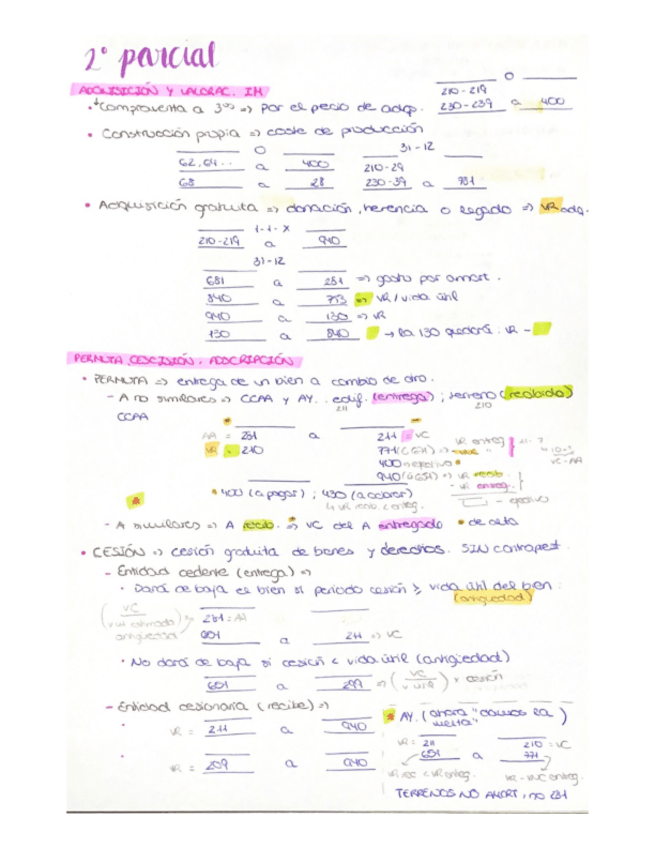 2º parcial
ADQUISICIÓN Y VALORAC. IM
• Compraventa a 3ºˢ => por el precio de adq.
0
210-219
230-239 a 400
• Construcción propia => coste de producción
0
62, 64.. a 400
68 a 28
31-12
210-29
230-39 a 781
• Adquisición gratuita => donación, herencia o legado => VR adq.
1-1-X
210-219 a 940
31-12
681 a 281 => gasto por amort.
840 a 753 => VR / vida útil
940 a 130 => VR
130 a 840 → la 130 quedará: VR -
PERMUTA, CESIÓN, ADSCRIPCIÓN
• PERMUTA => entrega de un bien a cambio de otro.
- A no similares => CCAA y AY. edif. (entrega) ; terreno (recibido)
211 210
CCAA
AA = 281 a 211 = VC
VR = 210 771 (6671) =>
400 negativo
940
• 400 (a pagar) ; 430 (a cobrar)
↳ VR recib. < entreg.
VR entreg
VC-AA
VR recib.
- VR entreg.
- efectivo
- A similares => A recib. => VC del A entregado • de alta
• CESIÓN => cesión gratuita de bienes y derechos. SIN contraprest.
- Entidad cedente (entrega) =>
• Dará de baja el bien si periodo cesión ≥ vida útil del bien:
(antigüedad)
(VC / vida estimada antigüedad)
281 = AA
651 a 211 => VC
• No dará de baja si cesión < vida útil (antigüedad)
651 a 299 => (VC / v. útil) x cesión
- Entidad cesionaria (recibe) =>
• VR = 211 a 940
• VR = 209 a 940
* AY. (ahora "damos la vuelta")
VR = 211 210 = VC
651 a 771
VR rec < VR entreg. VR - VNC entreg.
TERRENOS NO AMORT, no 281